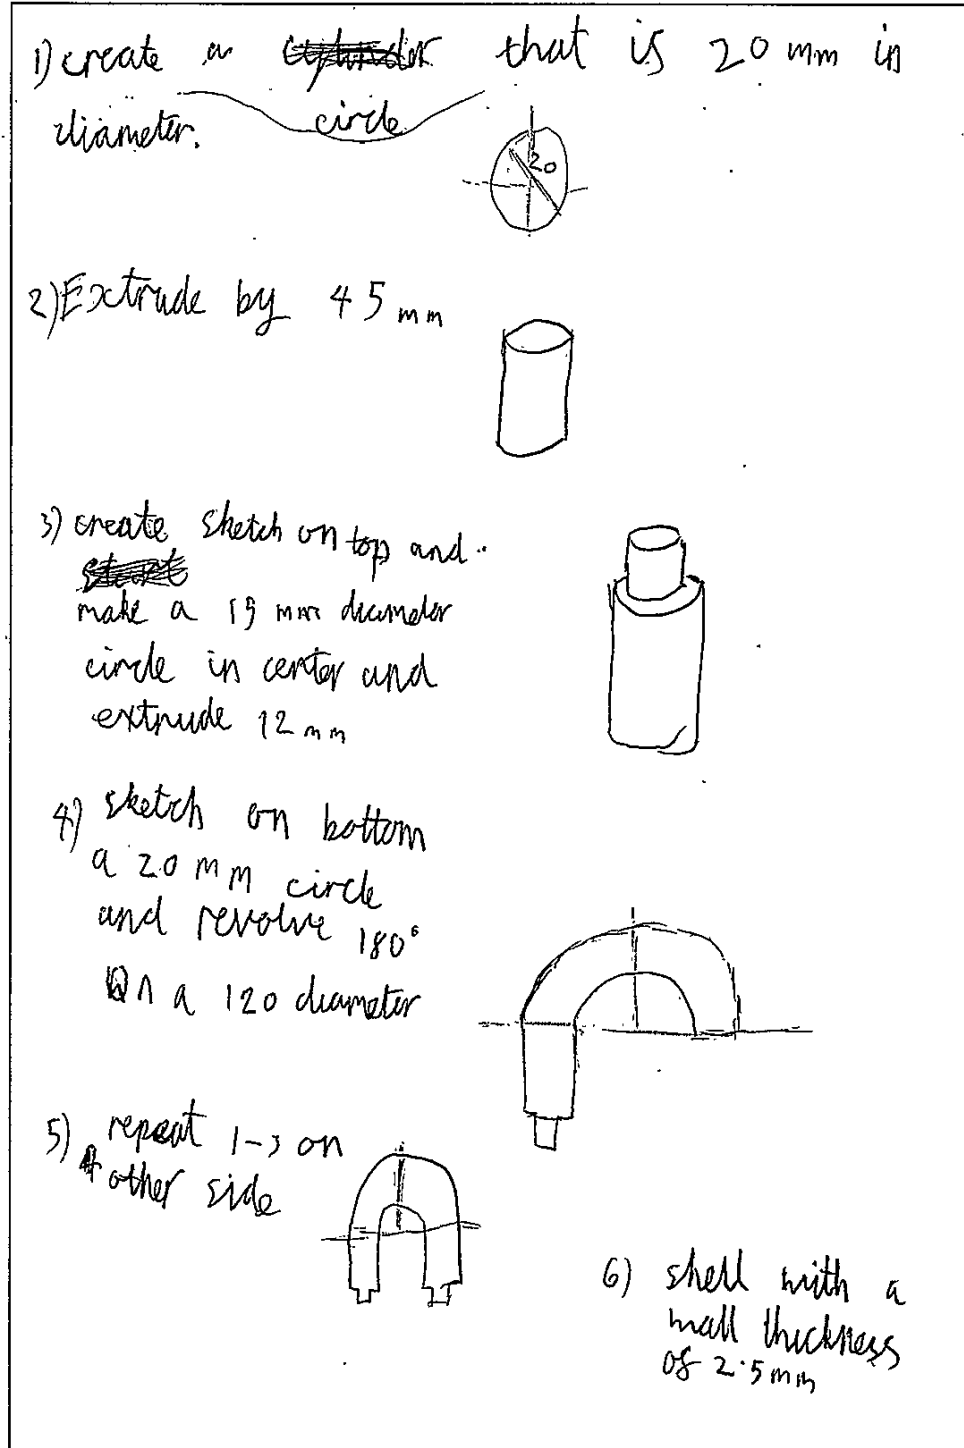 1) create a cylinder that is 20 mm in
circle
diameter.
20
2) Extrude by 45 mm
3) create sketch on top and
start
make a 15 mm diameter
circle in center and
extrude 12 mm
4) sketch on bottom
a 20 mm circle
and revolve 180°
on a 120 diameter
5) repeat 1-3 on
other side
6) shell with a
wall thickness
of 2.5mm